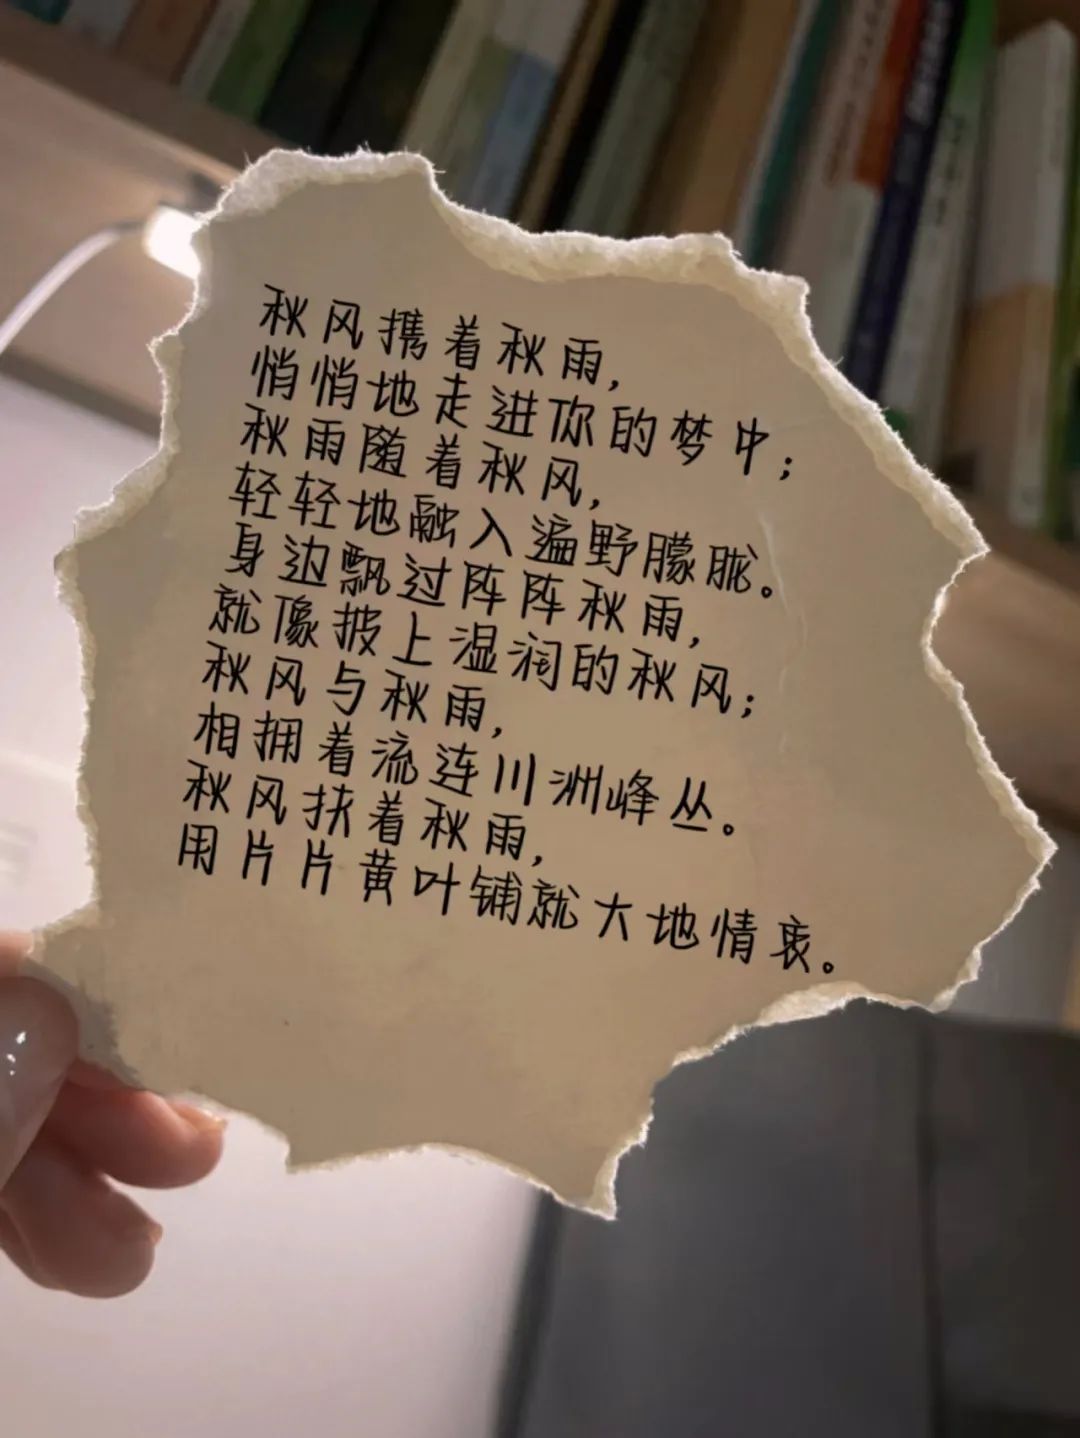 秋风携着秋雨,
悄悄地走进你的梦中;
秋雨随着秋风,
轻轻地融入遍野朦胧。
身边飘过阵阵秋雨,
就像披上湿润的秋风;
秋风与秋雨,
相拥着流连川洲峰丛。
秋风扶着秋雨,
用片片黄叶铺就大地情衷。